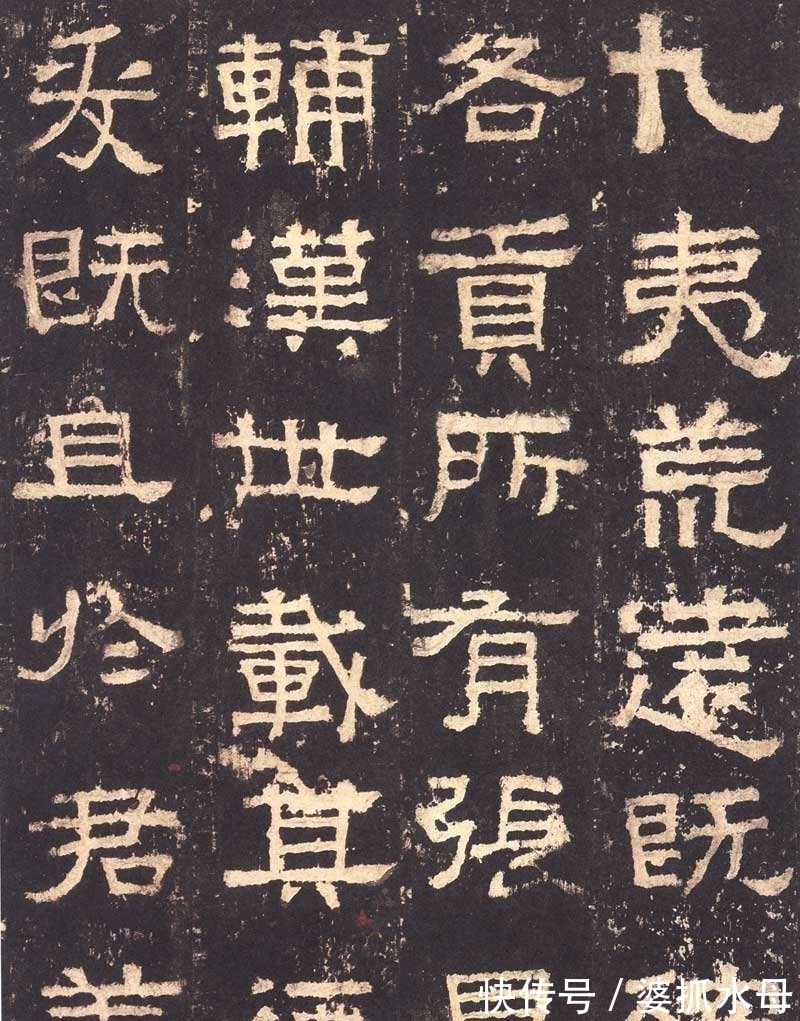 九夷荒遠既
各貢所有張
輔漢世載其
爰既且於君
快传号 / 婆抓水母